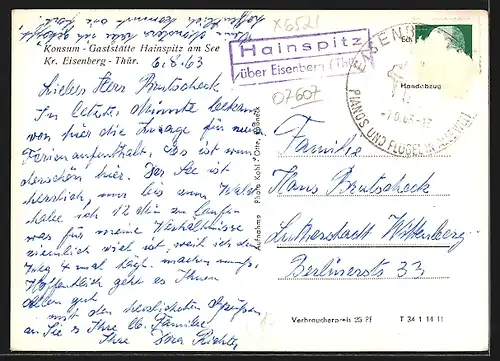 Konsum - Gaststätte Hainspitz am See
Kr. Eisenberg - Thür.
6.8.63
Liebes Herr Brutscheck
In letzter Minute bekam
von hier die Zusage für mein
Ferienaufenthalt, das ist wun
derschön hier. Der See ist
herrlich, nur bis zum Wald
habe ich 12 Min zu laufen
was für meine Verhältnisse
ziemlich viel ist, weil ich den
Weg 4 mal tägl. machen muss.
Hoffentlich geht es Ihnen
allen gut
mit den herzlichsten Grüßen
an Sie & Ihre lb. Familie
Ihre Richter
X6521
Hainspitz
über Eisenberg (Thür)
07607
EISENBERG
PIANOS UND FLÜGEL IN ALLE WELT
Handabzug
Familie
Hans Brutscheck
Lutherstadt Wittenberg
Berlinerstr 33
Aufnahme Photo Kahl
Verbraucherpreis 25 Pf T 34 1 14 11